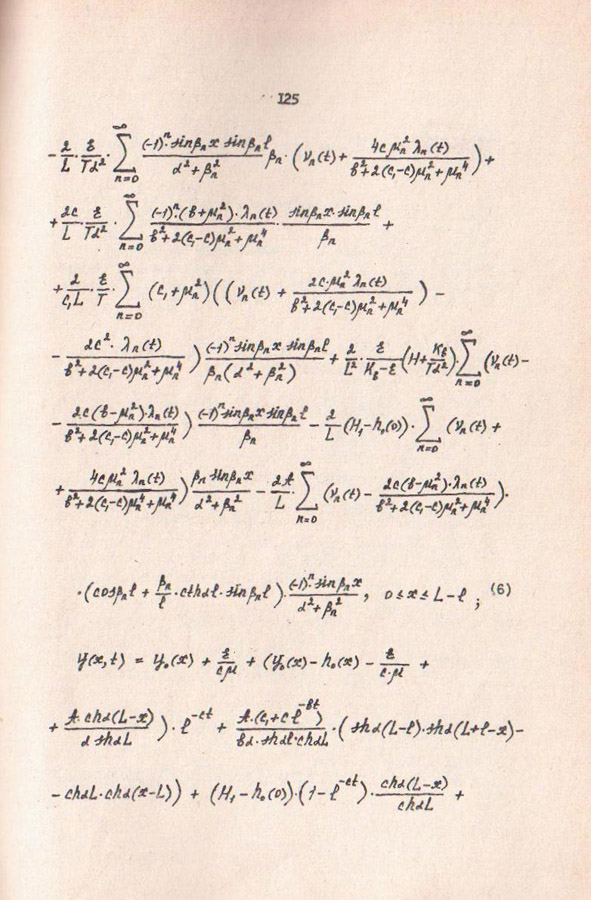 125
-2/L · ε/Tα² · ∑_{n=0}^{∞} ((-1)ⁿ · sinβₙx sinβₙℓ)/(α²+βₙ²) βₙ · (νₙ(t) + (4cμₙ² λₙ(t))/(b²+2(c₁-c)μₙ²+μₙ⁴)) +
+ 2c/L · ε/Tα² · ∑_{n=0}^{∞} ((-1)ⁿ·(b+μₙ²)·λₙ(t))/(b²+2(c₁-c)μₙ²+μₙ⁴) · (sinβₙx·sinβₙℓ)/βₙ +
+ 2/(c₁L) · ε/T · ∑_{n=0}^{∞} (c₁+μₙ²)((νₙ(t) + (2c·μₙ² λₙ(t))/(b²+2(c₁-c)μₙ²+μₙ⁴)) -
- (2c² · λₙ(t))/(b²+2(c₁-c)μₙ²+μₙ⁴)) ((-1)ⁿ sinβₙx sinβₙℓ)/(βₙ(α²+βₙ²)) + 2/L² · ε/(K_b-ε) (H+K_b/Tα²) · ∑_{n=0}^{∞} (νₙ(t)-
- (2c(b-μₙ²)·λₙ(t))/(b²+2(c₁-c)μₙ²+μₙ⁴)) ((-1)ⁿ sinβₙx sinβₙℓ)/βₙ - 2/L (H₁-h₀(0)) · ∑_{n=0}^{∞} (νₙ(t) +
+ (4cμₙ² λₙ(t))/(b²+2(c₁-c)μₙ⁴+μₙ⁴)) (βₙ sinβₙx)/(α²+βₙ²) - 2A/L · ∑_{n=0}^{∞} (νₙ(t) - (2c(b-μₙ²)·λₙ(t))/(b²+2(c₁-c)μₙ²+μₙ⁴)) ·
· (cosβₙℓ + βₙ/ℓ · cthαℓ · sinβₙℓ) · ((-1)ⁿ · sinβₙx)/(α²+βₙ²), 0≤x≤L-ℓ ; (6)
y(x,t) = y₀(x) + ε/cμ + (y₀(x) - h₀(x) - ε/c·μ +
+ (A·chα(L-x))/(α shαL)) · ℓ^{-ct} + (A·(c₁+cℓ^{-bt}))/(bα·shαℓ·chαL) · (shα(L-ℓ)·shα(L+ℓ-x)-
- chαL·chα(x-L)) + (H₁-h₀(0))·(1-ℓ^{-ct}) · (chα(L-x))/chαL +